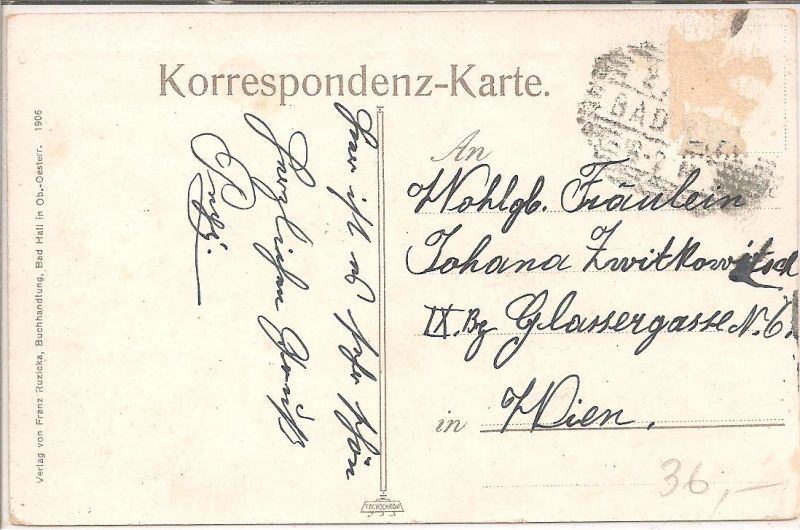 Korrespondenz-Karte.
BAD
An
Wohlgb. Fräulein
Johana Zwitkowitsch
IX. Bz Glassergasse N. 6.
in Wien,
hier ist es sehr schön
Herzlichen Gruß
Verlag von Franz Ruzicka, Buchhandlung, Bad Hall in Ob.-Oesterr. 1906
FACHOCHROM
36,—